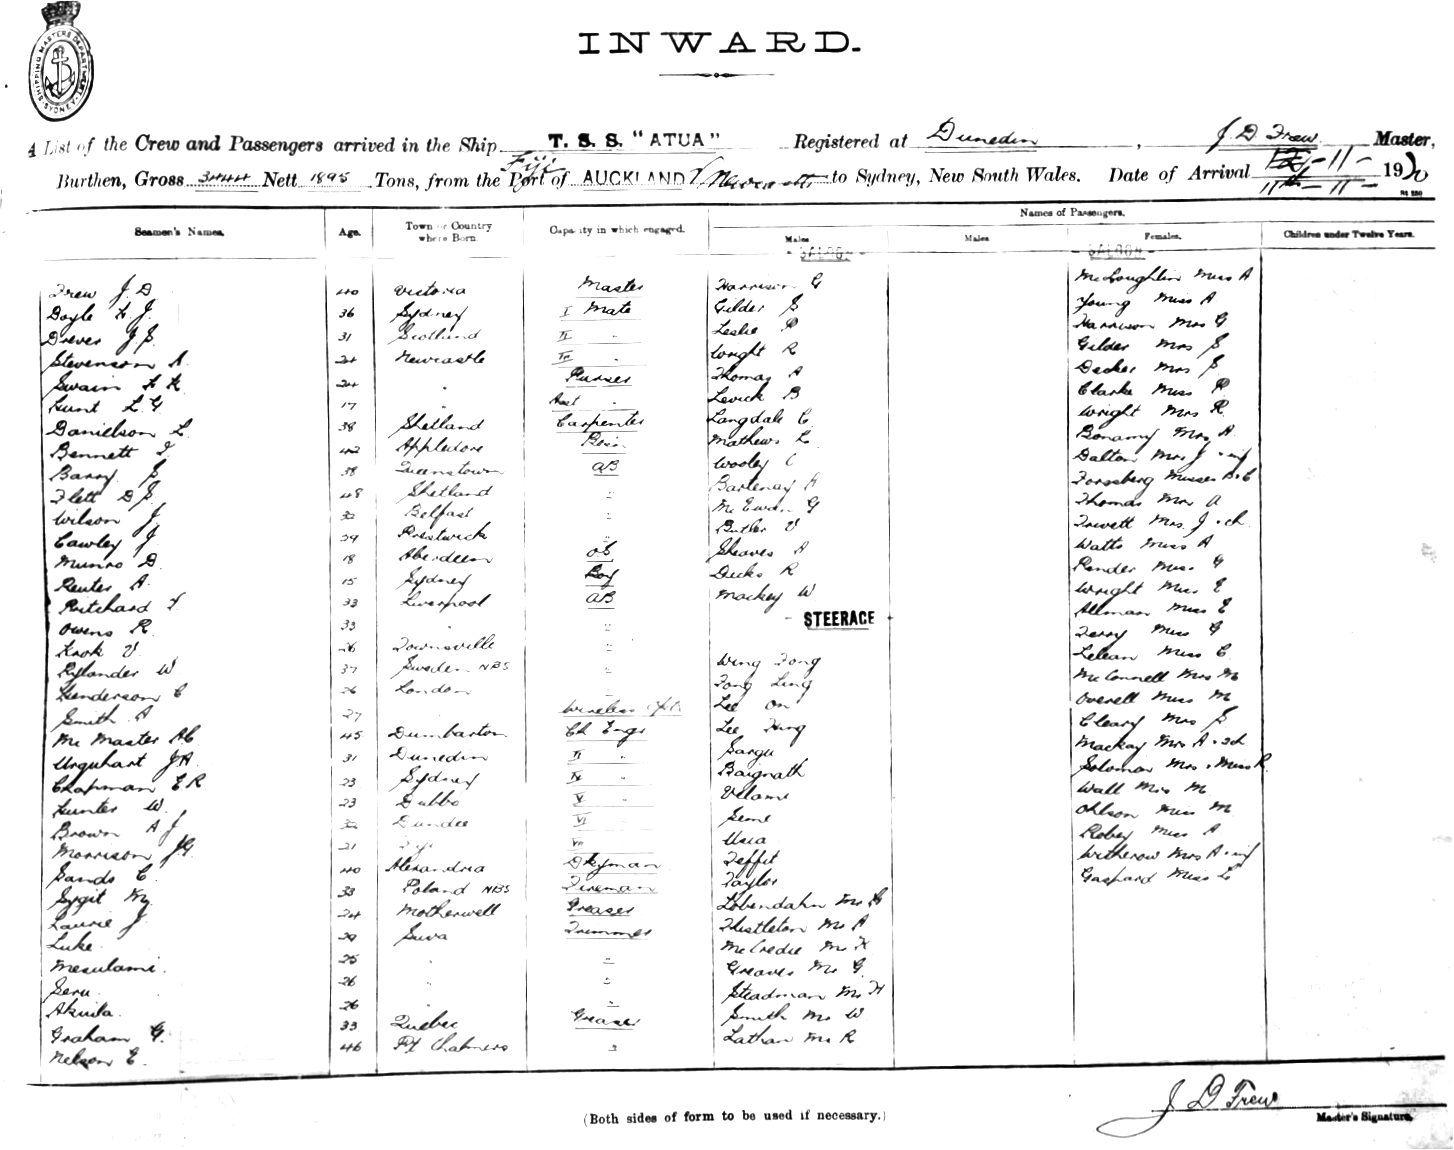 SHIPPING MASTERS DEPARTMENT SYDNEY
INWARD.
A List of the Crew and Passengers arrived in the Ship T. S. S. "ATUA" Registered at Dunedin, J. D. Frew Master,
Fiji
Burthen, Gross 3444 Nett 1895 Tons, from the Port of AUCKLAND / Newcastle to Sydney, New South Wales. Date of Arrival -11- 1920
11th - 11 -
Seamen's Names. Age. Town or Country where Born. Capacity in which engaged. Names of Passengers.
Males Males Females. Children under Twelve Years.
- SALOON - - SALOON -
Frew J. D 40 Victoria Master Harrison G McLoughlin Miss A
Doyle H. J. 36 Sydney I Mate Gilder S Young Miss A
Drever J S. 31 Scotland II " Leslie P Harrison Mrs G
Stevenson A. 24 Newcastle III " Wright R Gilder Mrs S
Swain H. R. 24 " Purser Thomas A Decker Mrs S
Hunt L. G 17 " Asst " Levick B Clarke Miss P
Danielson L. 38 Shetland Carpenter Langdale C. Wright Mrs R.
Bennett F. 42 Appledore Bosn Mathews L. Bonamy Mrs A
Barry S 38 Queenstown AB Wooley C Dalton Mrs J + inf
Flett D S. 48 Shetland " Bartenay A Forsberg Misses
Wilson J 32 Belfast " McEwan G Thomas Mrs A
Cawley J 29 Prestwick " Butler V Trivett Mrs J + ch
Munro D. 18 Aberdeen OS Sheaves A Watts Miss A
Reuter A. 15 Sydney Boy Decks R Render Miss G
Pritchard F 33 Liverpool AB Mackey W Wright Miss E
Owens R. 33 " " - STEERAGE - Allman Miss E
Krok V. 26 Townsville " Terry Miss G
Rylander W 37 Sweden NBS " Wing Fong Lelean Miss C.
Henderson C 26 London " Fong Ling McConnell Mrs M
Smith A 27 " Wireless Opr Lee On Overell Miss M
McMaster AC 45 Dumbarton Ch Engr Lee Hing Cleary Mrs S
Urquhart J.A. 31 Dunedin II " Sargu Mackay Mrs A + 2ch
Chapman E R 23 Sydney IV " Baijnath Solomon Mrs + Miss R
Hunter W. 23 Dubbo V " Velami Wall Mrs M
Brown A J 32 Dundee VI " Seme Ohlson Miss M
Morrison J.G. 21 Fiji VII " Usia Robey Miss A
Sands C. 40 Alexandria Dkyman Teffit Witherow Mrs A + inf
Sygit 33 Poland NBS Fireman Taylor Gaspard Miss L
Laurie J. 24 Motherwell Greaser Lobendahn Mr
Luke. 29 Suva Trimmer Thistleton Mr A
Mesulami. 25 " " McCredie Mr H
Seru. 26 " " Greaves Mr G.
Akuila. 26 " " Steadman Mr H
Graham G. 33 Quebec Greaser Smith Mr W
Nelson E. 46 Pt Chalmers " Lathan Mr R
J D Frew
(Both sides of form to be used if necessary.)
Master's Signature.